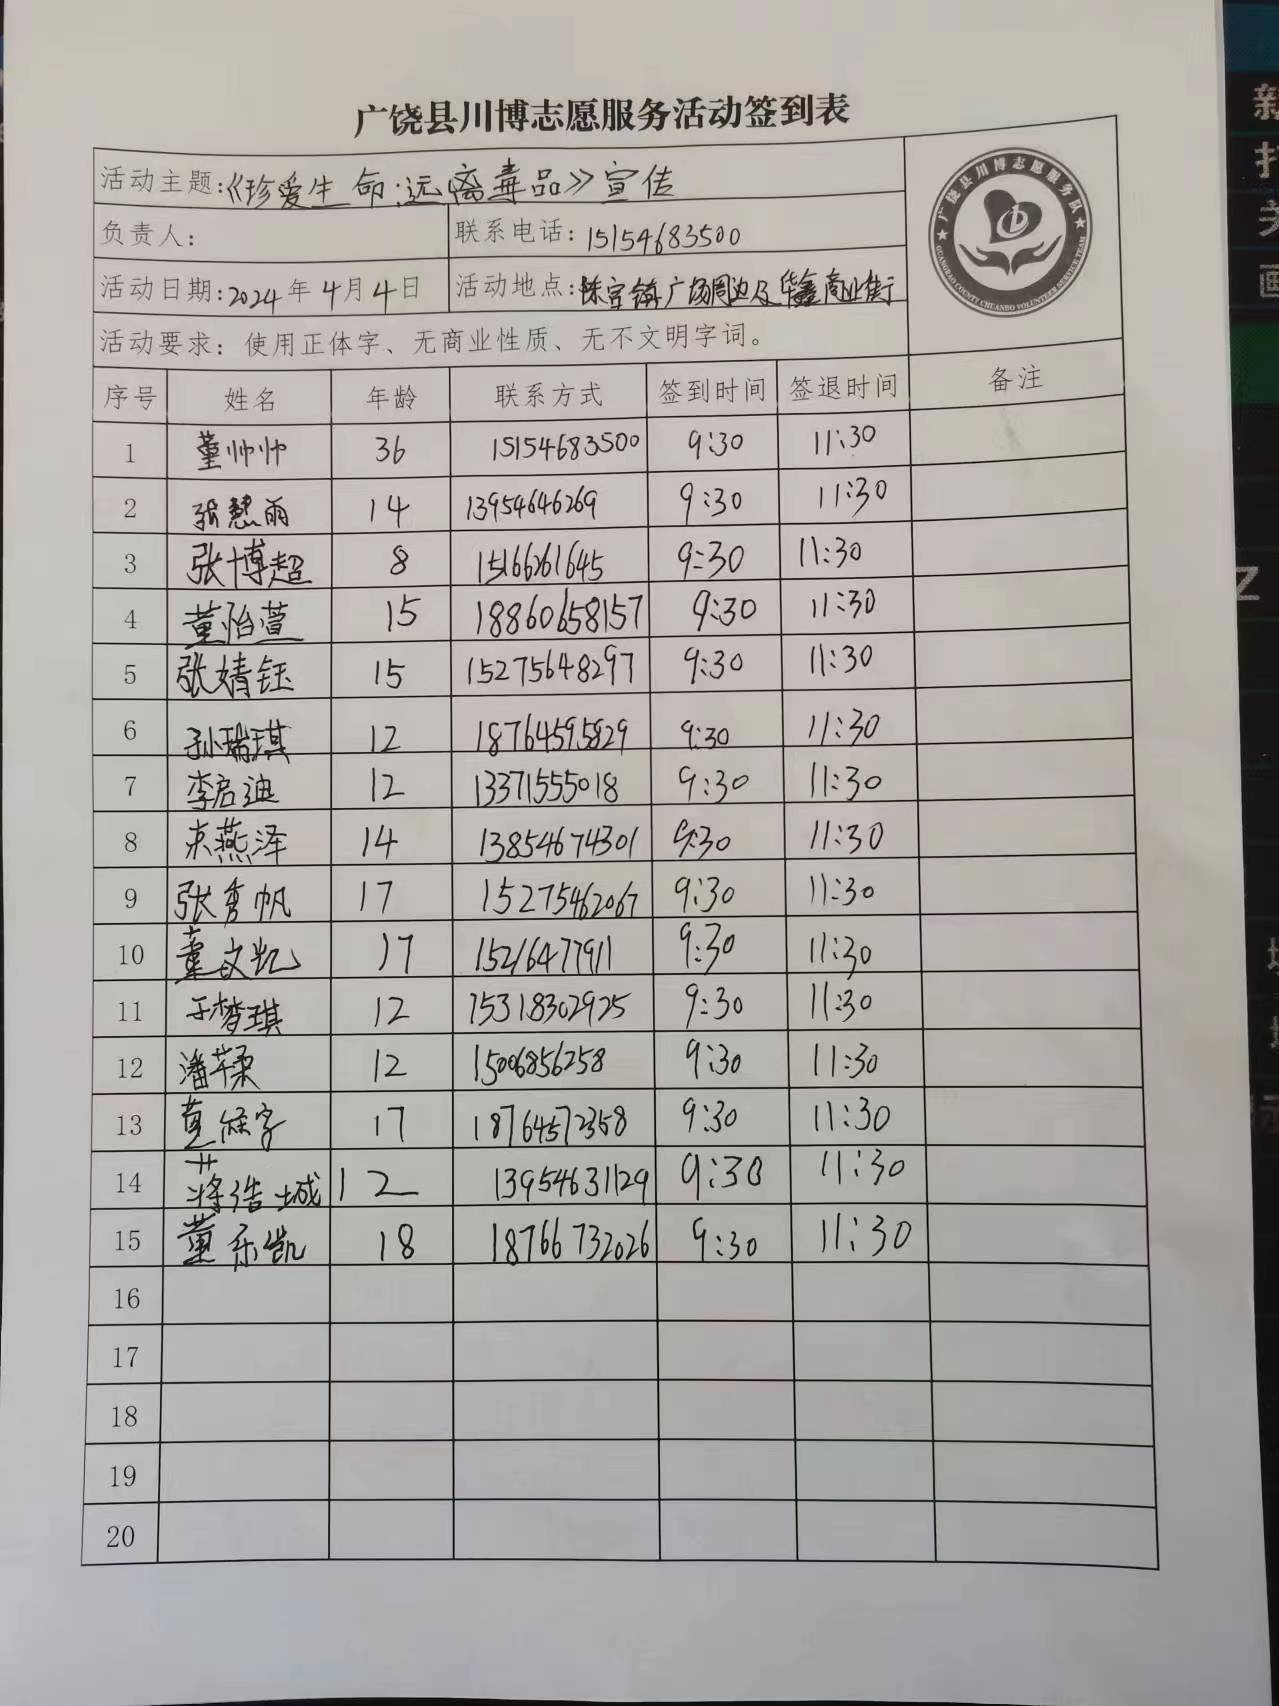 广饶县川博志愿服务活动签到表
活动主题:《珍爱生命;远离毒品》宣传
负责人: 联系电话: 15154683500
活动日期:2024年4月4日 活动地点:陈官镇广场周边及华鑫商业街
活动要求: 使用正体字、无商业性质、无不文明字词。
广饶县川博志愿服务队
GUANGRAO COUNTY CHUANBO VOLUNTEER SERVICE TEAM
序号 姓名 年龄 联系方式 签到时间 签退时间 备注
1 董帅帅 36 15154683500 9:30 11:30
2 张慧雨 14 13954646269 9:30 11:30
3 张博超 8 15166261645 9:30 11:30
4 董怡萱 15 18860658157 9:30 11:30
5 张婧钰 15 15275648297 9:30 11:30
6 孙瑞琪 12 18764595829 9:30 11:30
7 李启迪 12 13371555018 9:30 11:30
8 燕泽 14 13854674301 9:30 11:30
9 张秀帆 17 15275462067 9:30 11:30
10 董文凯 17 15216477911 9:30 11:30
11 于梦琪 12 15318302925 9:30 11:30
12 潘 柔 12 15006856258 9:30 11:30
13 17 18764572358 9:30 11:30
14 蒋浩城 12 13954631129 9:30 11:30
15 董乐凯 18 18766732026 9:30 11:30
16
17
18
19
20